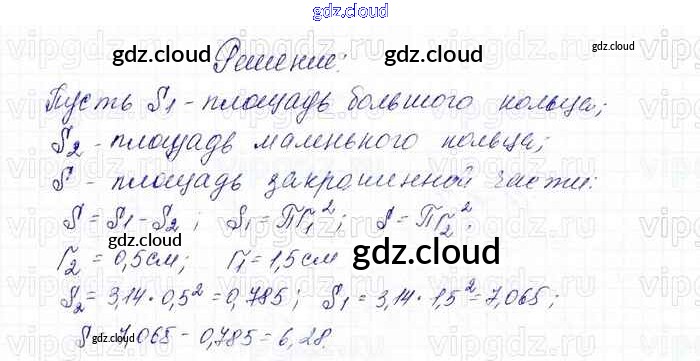 gdz.cloud
gdz.cloud
gdz.cloud
Решение:
Пусть S1 - площадь большого кольца;
S2 - площадь маленького кольца;
S - площадь закрашенной части:
S = S1 - S2; S1 = Пr1²; S = Пr2².
gdz.cloud
r2 = 0,5см; r1 = 1,5см
gdz.cloud
S2 = 3,14·0,5² = 0,785; S1 = 3,14·1,5² = 7,065;
S = 7,065 - 0,785 = 6,28.
gdz.cloud
gdz.cloud